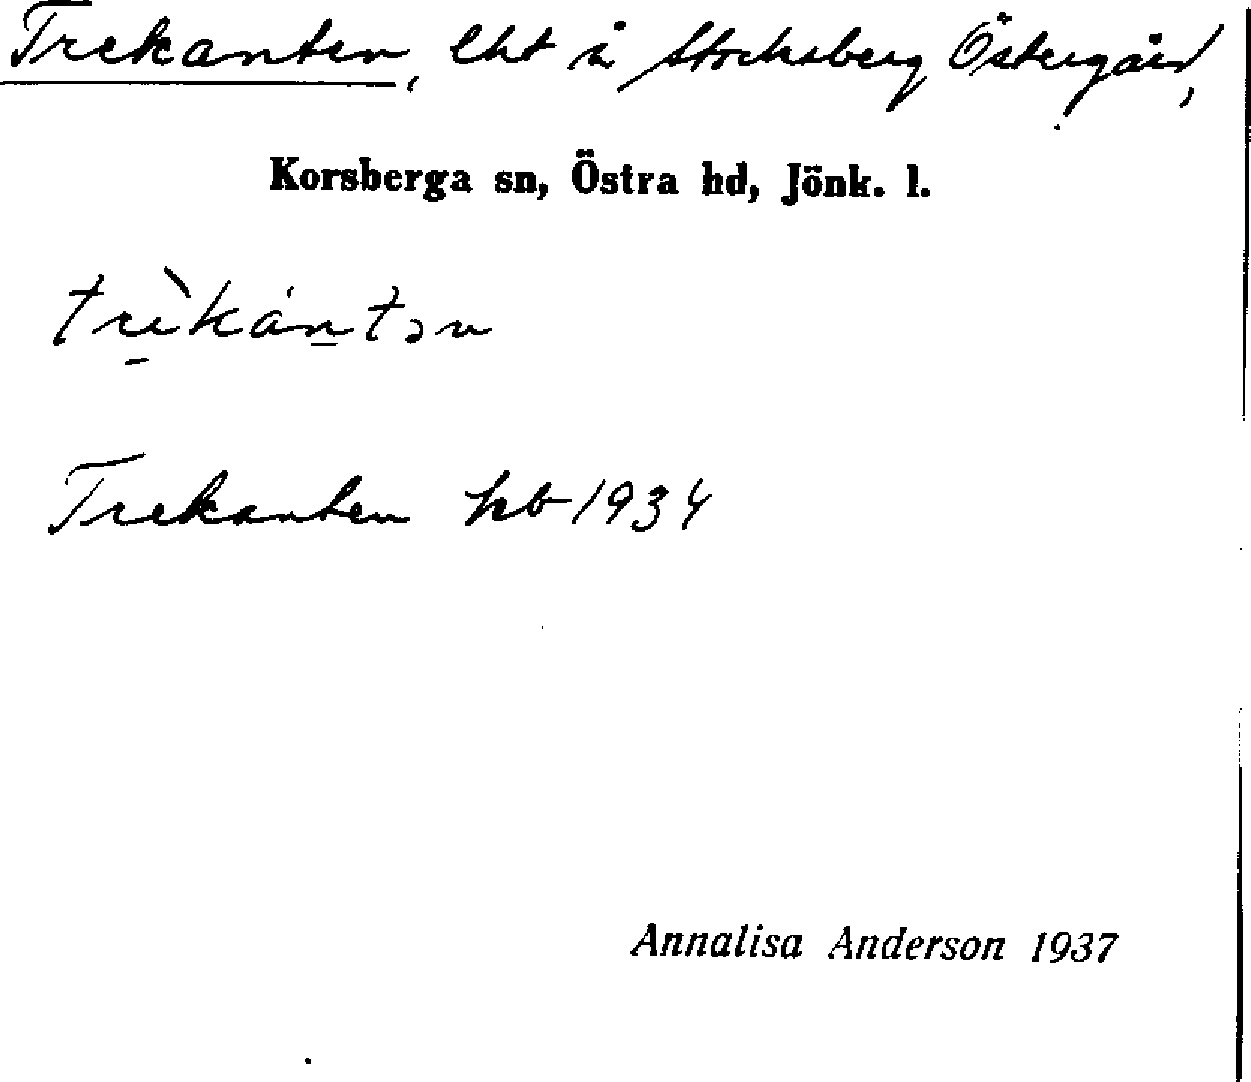 Trekanten, lht å Stocksberg Östergård,
Korsberga sn, Östra hd, Jönk. l.
trìkántən
Trekanten hb 1934
Annalisa Anderson 1937